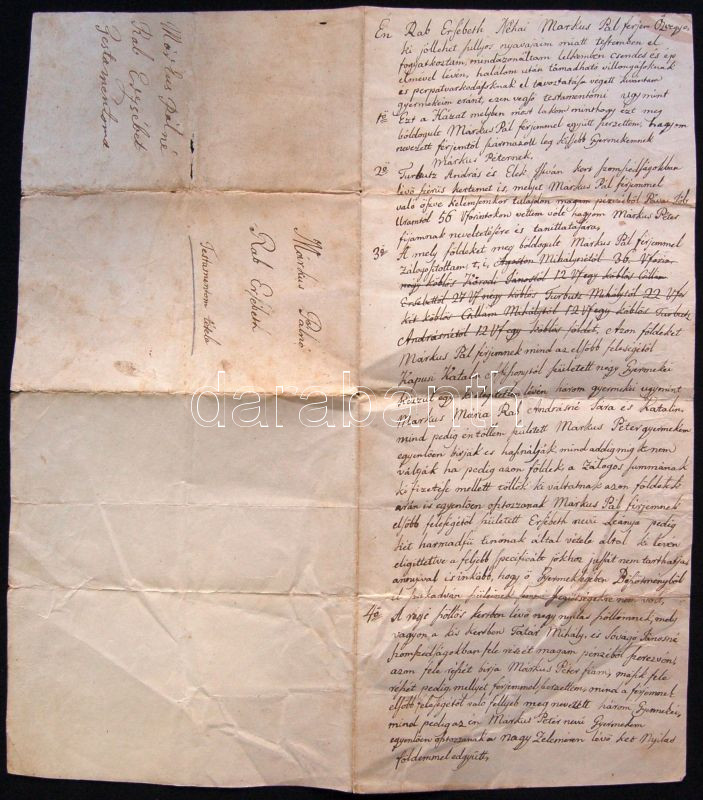 Márkus Pálné
Rab Erzsébet
Testamentoma
Markus Palné
Rab Ersébeth
Testamentom tétele
darabanth
En Rab Ersébeth Néhai Markus Pál ferjem Özvegye
ki jóllehet sullyos nyavajaim miatt testemben el
fogyatkoztam, mindazonáltam lelkemben csendés és ép
elmével lévén, halalom után támadható villongasoknak
és perpatvarkodasoknak el távoztatása végett kivántam
gyermekeim eránt, ezen vegső testamentomi ugymint
1ő Ezt a Házat melyben most lakom minthogy ezt meg
bóldogult Markus Pál férjemmel együtt szerzettem, hagyom
nevezett férjemtől származott leg kisebb Gyermekemnek
Márkus Péternek.
2ő Turbutz András és Elek István kert szomszédságokban
lévő szérüs kertemet is, melyet Márkus Pál férjemmel
való öszve kelésemkor tulajdon magam penzéből
Uramtól 56 Vforintokon vettem volt hagyom Márkus Péter
fijamnak neveltetésére és tanittatására,
3ő A mely földeket meg boldogult Markus Pál férjemmel
Zálogositottam, t, i, Ágoston Mihálynétól 36 Vforin
negy köblös Károdi Jánostól 12 Vf egy köblös Csillam
Ersébettől 24 Vf négy köblös Turbutz Mihálytól 22 Vfo
két köblös Csillam Mihálytól 12 Vf egy köblös Turbutz
Andrásnétól 12 Vf egy köblös földet, Azon földeket
Markus Pál férjemnek mind az elsőbb feleségétől
Kapusi Katalin Aszszonytól született negy Gyermekei
közzül egy ki elégittetve lévén három gyermekei ugymint
Markus Mária Rál Andrásné Sára és Katalin,
mind pedig éntőllem született Markus Péter gyermekem
egyenlően birják és használják mind addig mig ki nem
váltják ha pedig azon földek, a Zálogos summának
ki fizetése mellett tőllök ki váltatnak azon földekek
árán is egyenlően osztozzanak Markus Pál férjemnek
elsőbb feleségétől született Ersébeth nevü Leánya pedig
két harmadfü tinonak által vétele által ki lévén
eligittetve a feljebb specificált jókhoz jussát nem tarthattya
annyival is inkább, hogy ő Gyermekségében Böszörménybol
el szakadván szüleinek segittségekre nem volt,
4ő A rázsé szöllős kertben lévő negy nyilas szöllőmnek, mely
vagyon a kis kertben Tatár Mihály, és Sovágó Jánosné
szomszédságokban fele részét magam penzéből szerezvén,
azon fele részét birja Márkus Péter fiam, másik fele
részét pedig, mellyet férjemmel szerzettem, mind a férjemmel
elsőbb feleségétől való fellyeb meg nevezett három Gyermekei,
mind pedig az én Markus Péter nevü Gyermekem
egyenlően osztozzanak a nagy Zeleméren lévő két Nyilas
földemmel edgyütt,